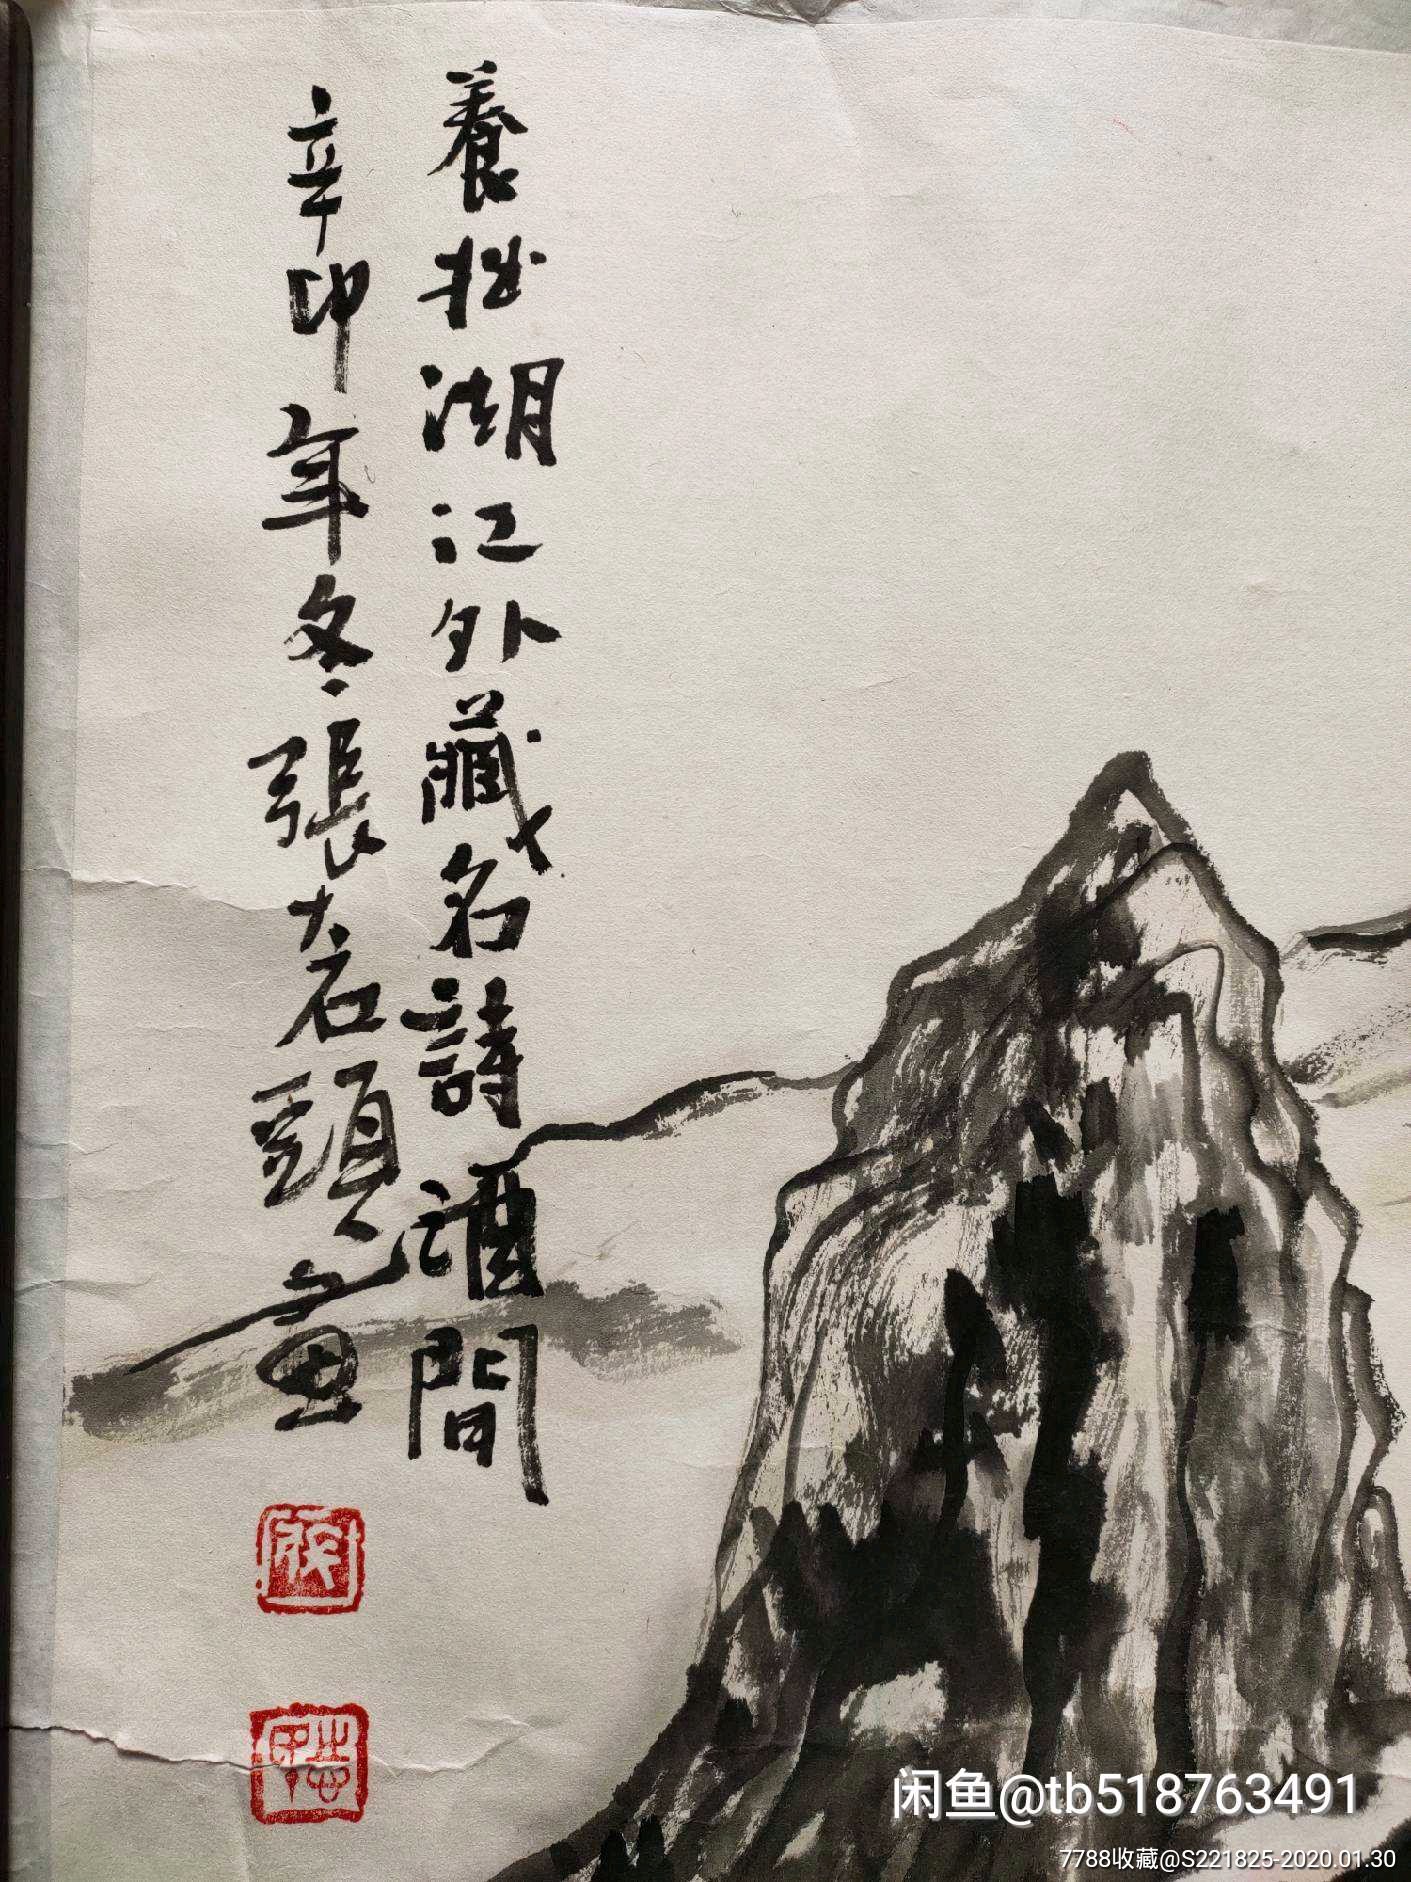 養拙湖江外藏名詩酒間
辛卯年冬張大石頭畫
闲鱼@tb518763491
7788收藏@S221825-2020.01.30